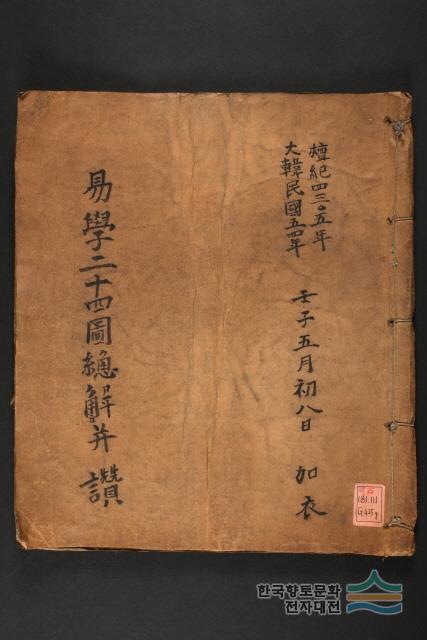 檀紀四三〇五年
大韓民國五四年
壬子五月初八日 加衣
易學二十四圖總解并讚
古
181.111
한국향토문화
전자대전